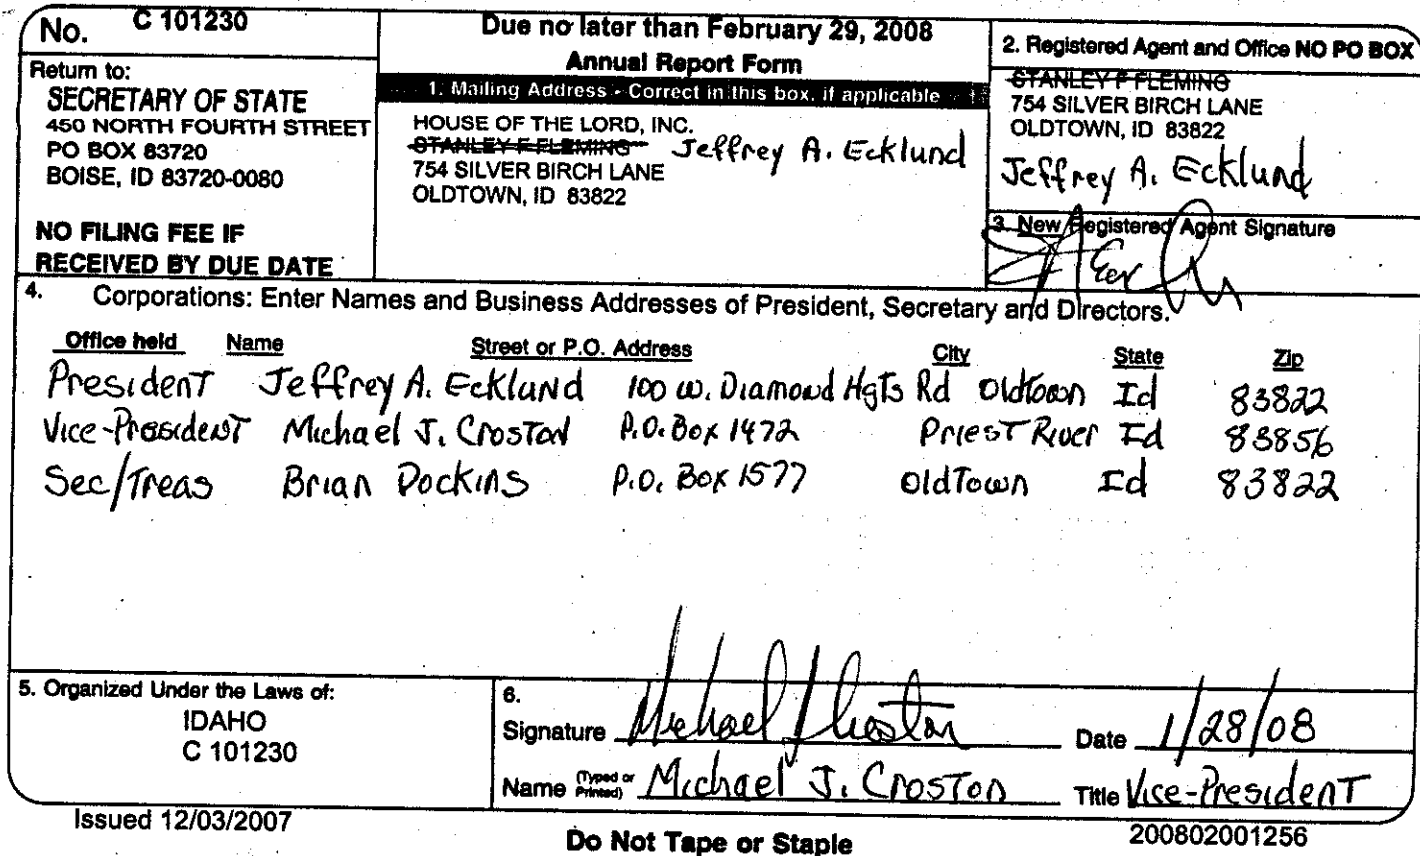 No. C 101230
Return to:
SECRETARY OF STATE
450 NORTH FOURTH STREET
PO BOX 83720
BOISE, ID 83720-0080
NO FILING FEE IF
RECEIVED BY DUE DATE
Due no later than February 29, 2008
Annual Report Form
1. Mailing Address - Correct in this box, if applicable
HOUSE OF THE LORD, INC.
STANLEY F FLEMING Jeffrey A. Ecklund
754 SILVER BIRCH LANE
OLDTOWN, ID 83822
2. Registered Agent and Office NO PO BOX
STANLEY F FLEMING
754 SILVER BIRCH LANE
OLDTOWN, ID 83822
Jeffrey A. Ecklund
3. New Registered Agent Signature
4. Corporations: Enter Names and Business Addresses of President, Secretary and Directors.
Office held Name Street or P.O. Address City State Zip
President Jeffrey A. Ecklund 100 W. Diamond Hgts Rd Oldtown Id 83822
Vice-President Michael J. Croston P.O. Box 1472 Priest River Id 83856
Sec/Treas Brian Dockins P.O. Box 1577 Oldtown Id 83822
5. Organized Under the Laws of:
IDAHO
C 101230
6.
Signature Michael J Croston Date 1/28/08
Name (Typed or Printed) Michael J. Croston Title Vice-President
Issued 12/03/2007
Do Not Tape or Staple
200802001256